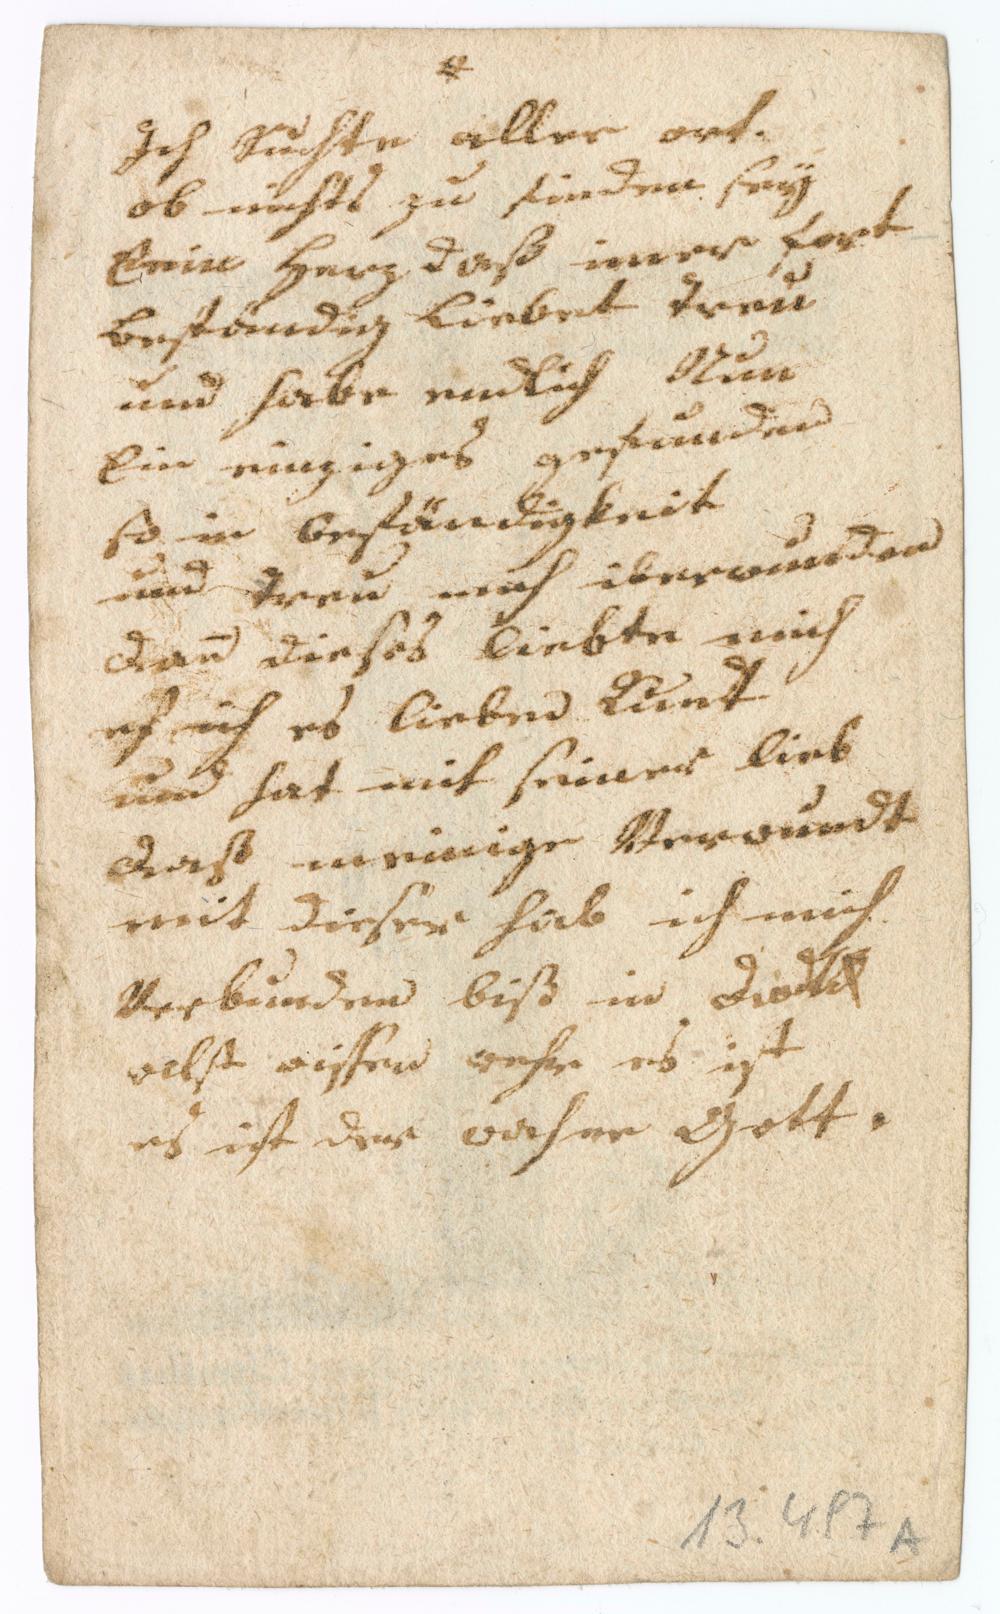 *
Ich Suchte aller ort.
ob nichts zu finden seÿ
Ein Herz daß imer fort
beständig liebet treü
und habe endlich Nun
Ein einziges gefunden
so in beständigkeit
und treu mich iberwunden
dan̄ dieses liebte mich
es ich es lieben Kunt
und hat mit seiner lieb
daß meinige Verwundt
mit dieser hab ich mich
Verbunden biß in
wilst wissen wehr es ist
es ist der wahre Gott.
13.487 A